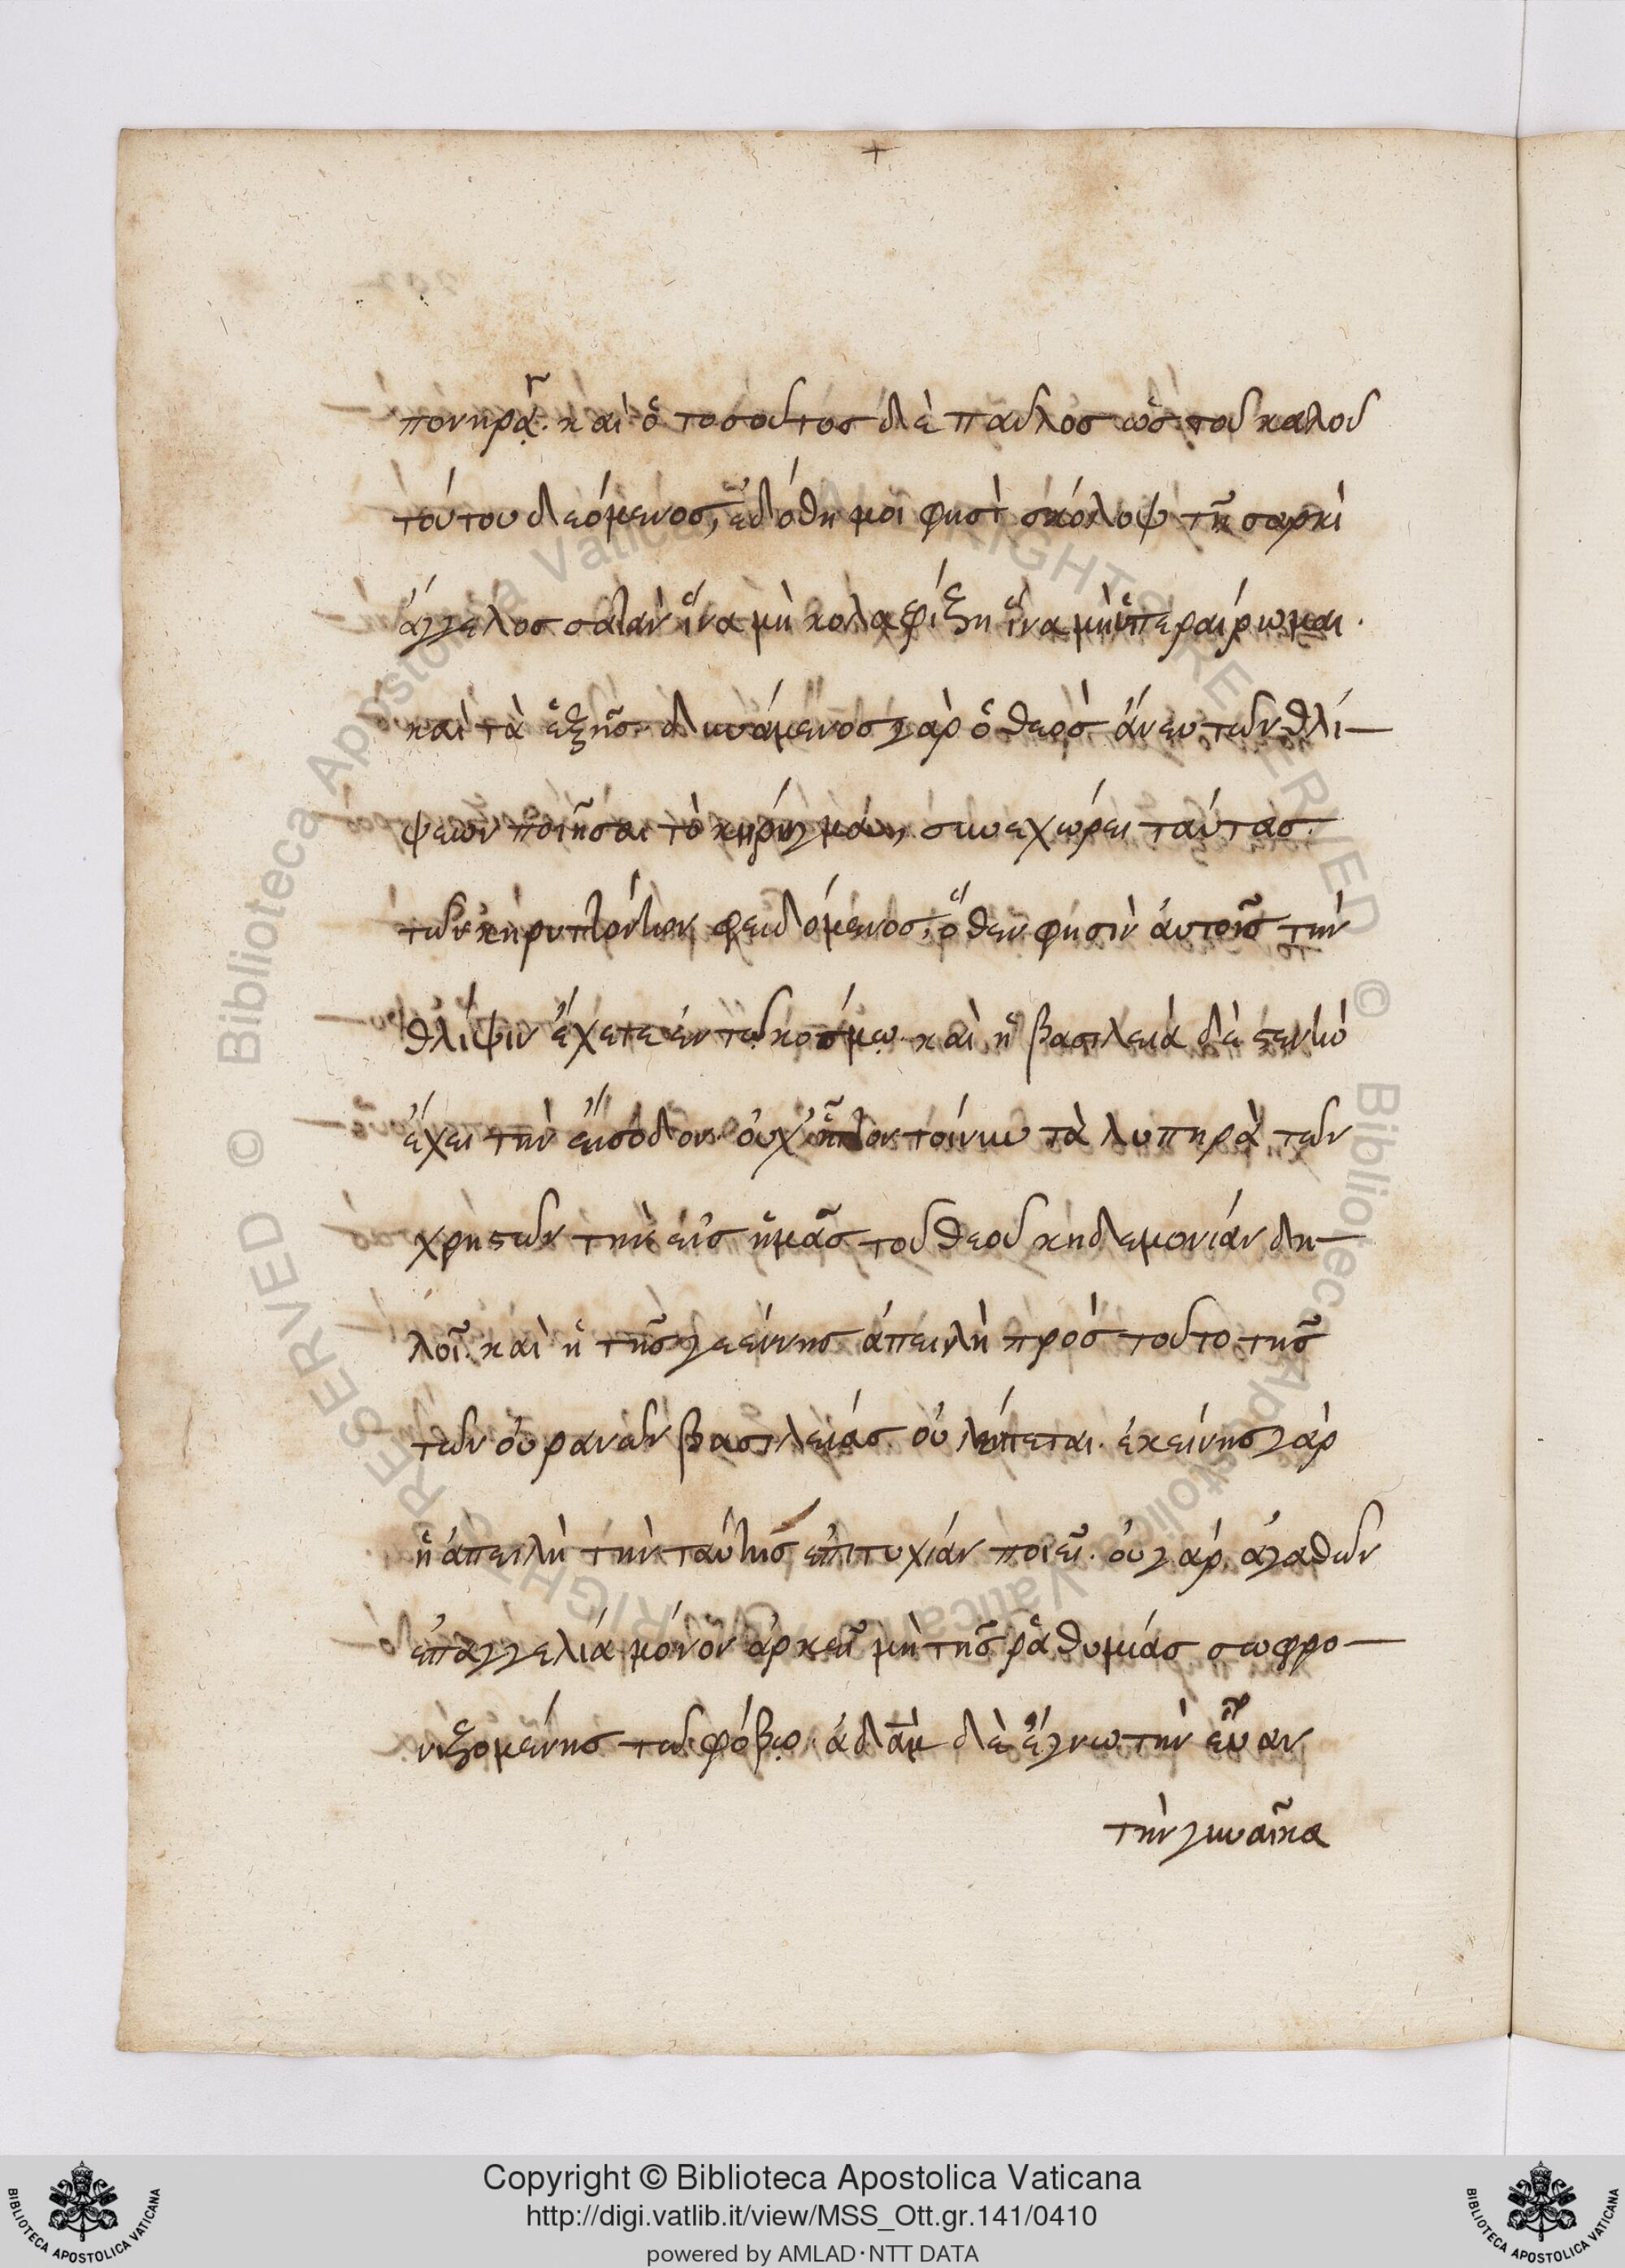 +
πονηρᾷ. καὶ ὁ τοσοῦτος δὲ παῦλος ὡς τοῦ καλοῦ
τούτου δεόμενος, ἐδόθη μοι φησὶ σκόλοψ τῇ σαρκὶ
ἄγγελος σατὰν ἵνα μὴ κολαφίζη ἵνα μὴ ὑπεραίρωμαι.
καὶ τὰ ἑξῆς. δυνάμενος γὰρ ὁ θεὸς ἄνευ τῶν θλί-
ψεων ποιῆσαι τὸ κήρυγμα, συνεχώρει ταύτας.
τῶν κηρυττόντων φειδόμενος, ὅθεν φησὶν αὐτοῖς τὴν
θλίψιν ἔχετε ἐν τῷ κόσμῳ. καὶ ἡ βασιλεία δὲ στενὴν
ἔχει τὴν εἴσοδον. οὐχ ἧττον τοίνυν τὰ λυπηρὰ τῶν
χρηστῶν τὴν εἰς ἡμᾶς τοῦ θεοῦ κηδεμονίαν δη-
λοῖ. καὶ ἡ τῆς γεέννης ἀπειλὴ πρὸς τοῦτο τῆς
τῶν οὐρανῶν βασιλείας οὐ λείπεται. ἐκείνης γὰρ
ἡ ἀπειλὴ τὴν ταύτης ἐπιτυχίαν ποιεῖ. οὐ γὰρ ἀγαθῶν
ἐπαγγελία μόνον ἀρκεῖ μὴ τῆς ῥαθυμίας σωφρο-
νιζομένης τῷ φόβῳ. ἀδὰμ δὲ ἔγνω τὴν εὖαν
τὴν γυναῖκα
© Biblioteca Apostolica Vaticana ALL RIGHTS RESERVED
© Biblioteca Apostolica Vaticana ALL RIGHTS RESERVED
Copyright © Biblioteca Apostolica Vaticana
http://digi.vatlib.it/view/MSS_Ott.gr.141/0410
powered by AMLAD·NTT DATA
BIBLIOTECA APOSTOLICA VATICANA
BIBLIOTECA APOSTOLICA VATICANA